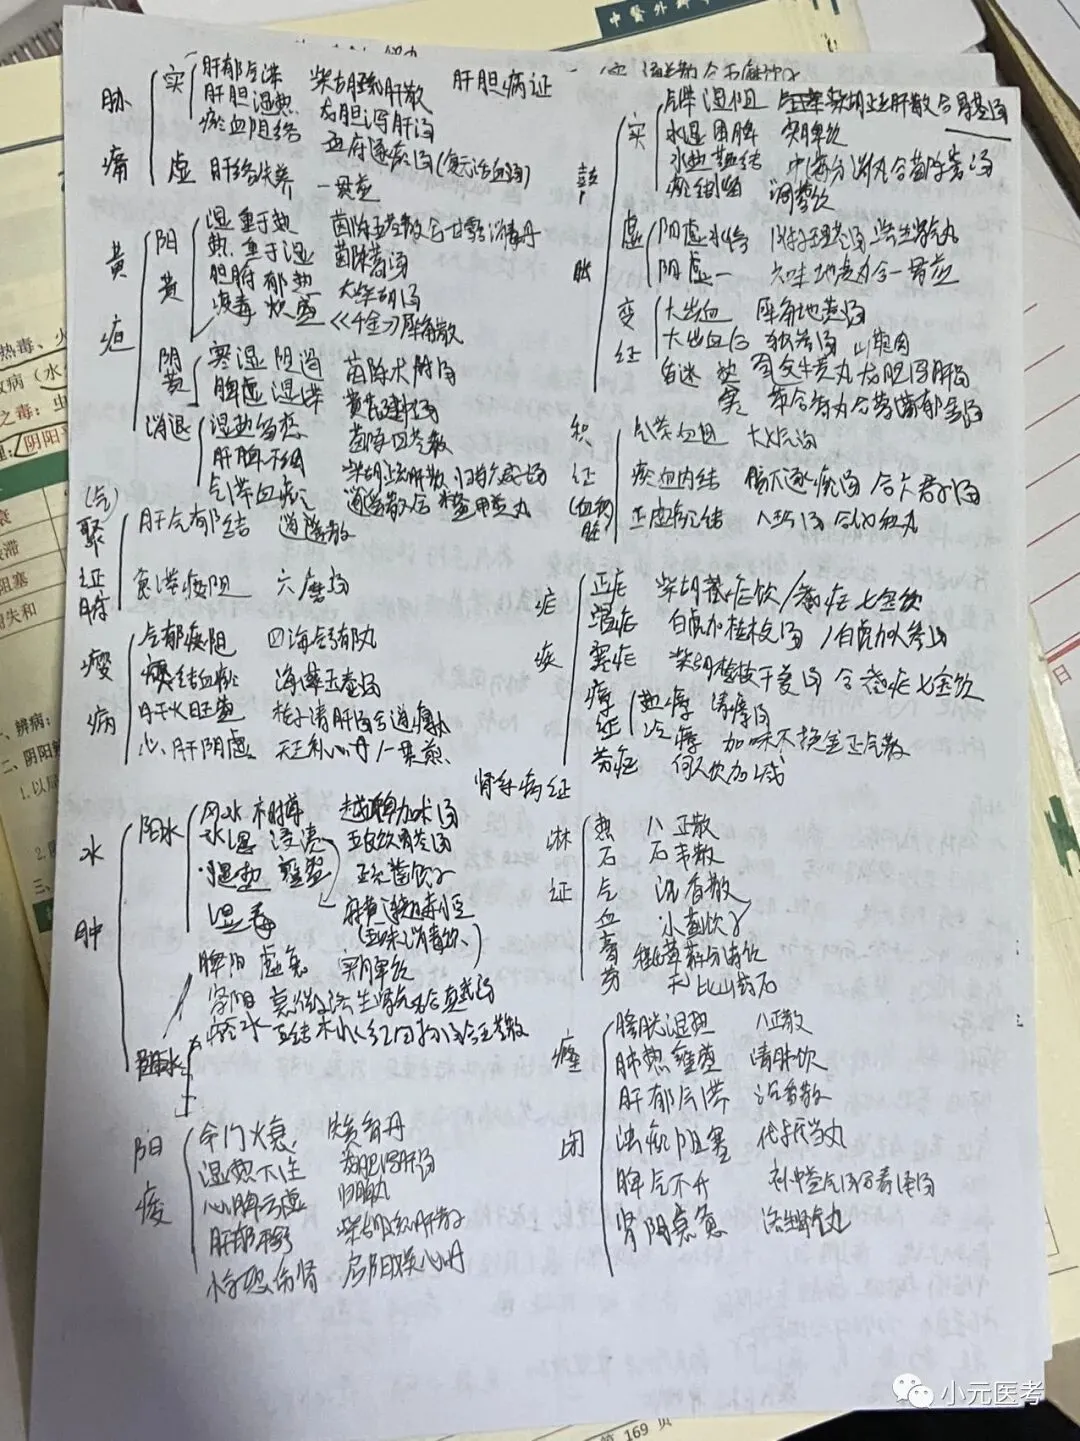 中醫外科
肝胆病证
胁痛
实
肝郁气滞 柴胡疏肝散
肝胆湿热 龙胆泻肝汤
瘀血阻络 血府逐瘀汤(复元活血汤)
虚 肝络失养 一贯煎
黄疸
阳黄
湿重于热 茵陈五苓散合甘露消毒丹
热重于湿 茵陈蒿汤
胆腑郁热 大柴胡汤
疫毒炽盛 《千金》犀角散
阴黄
寒湿阻遏 茵陈术附汤
脾虚湿滞 黄芪建中汤
消退
湿热留恋 茵陈四苓散
肝脾不调 柴胡疏肝散 归芍六君子汤
气滞血瘀 逍遥散合鳖甲煎丸
(气)
聚证
腑
肝气郁结 逍遥散
食滞痰阻 六磨汤
瘿病
气郁痰阻 四海舒郁丸
痰结血瘀 海藻玉壶汤
肝火旺盛 栀子清肝汤合
心肝阴虚 天王补心丹/一贯煎
鼓胀
实
气滞湿阻 柴胡疏肝散合胃苓汤
水湿困脾 实脾饮
水热蕴结 中满分消丸合茵陈蒿汤
瘀结 调营饮
虚
阳虚水 附子理苓汤 济生肾气丸
阴虚 六味地黄丸合一贯煎
变证
大出血 犀角地黄汤
大出血后 独参汤 山萸肉
昏迷 热 安宫牛黄丸 龙胆泻肝汤
实 苏合香丸合菖蒲郁金汤
积证
(血
脏)
气滞血阻 大七气汤
瘀血内结 膈下逐瘀汤 合六君子汤
正虚瘀结 八珍汤合化积丸
疟疾
正疟 柴胡截疟饮/截疟七宝饮
温疟 白虎加桂枝汤/白虎加人参汤
寒疟 柴胡桂枝干姜汤 合截疟七宝饮
瘴证
热瘴 清瘴汤
冷瘴 加味不换金正气散
劳疟 何人饮加减
肾系病证
水肿
阳水
风水相搏 越婢加术汤
水湿浸渍 五皮饮胃苓汤
湿热壅盛 疏凿饮子
湿毒 麻黄连翘赤小豆
(五味消毒饮)
阴水
脾阳虚衰 实脾饮
肾阳衰微 济生肾气丸合真武汤
瘀水互结 桃红四物汤合五苓散
淋证
热 八正散
石 石韦散
气 沉香散
血 小蓟饮子
膏 程氏萆薢分清饮
劳 无比山药丸
癃闭
膀胱湿热 八正散
肺热壅盛 清肺饮
肝郁气滞 沉香散
浊瘀阻塞 代抵当丸
脾气不升 补中益气汤 春泽汤
肾阳衰惫 济生肾气丸
阳痿
命门火衰 赞育丹
湿热下注 龙胆泻肝汤
心脾亏虚 归脾丸
肝郁不舒 柴胡疏肝散
惊恐伤肾 启阳娱心丹
热毒、火
一、辨病:
二、阴阳
169 页
小元医考